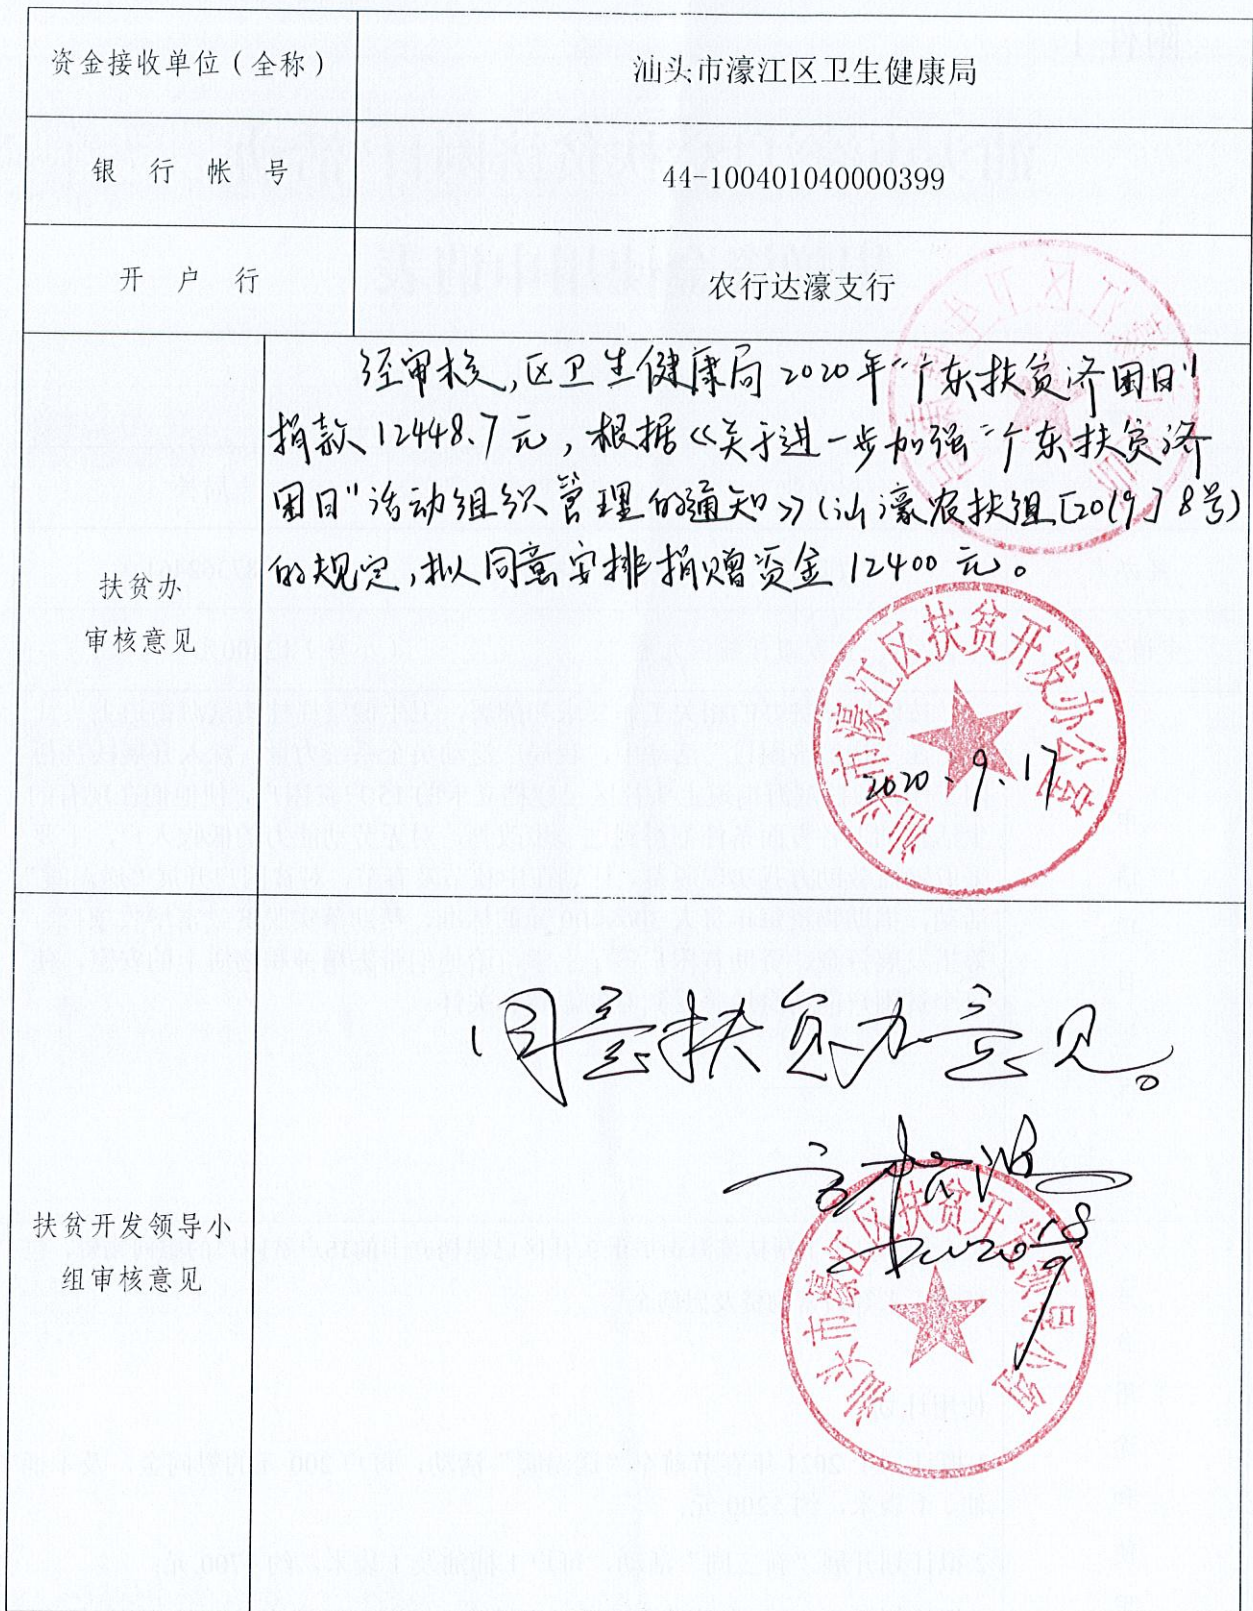 资金接收单位（全称）
汕头市濠江区卫生健康局
银行帐号
44-100401040000399
开户行
农行达濠支行
扶贫办
审核意见
经审核，区卫生健康局2020年“广东扶贫济困日”
捐款12448.7元，根据《关于进一步加强“广东扶贫济
困日”活动组织管理的通知》（汕濠农扶组[2019]8号）
的规定，拟同意安排捐赠资金12400元。
汕头市濠江区扶贫开发办公室
2020.9.17
扶贫开发领导小
组审核意见
同意扶贫办意见。
2020 18/9
汕头市濠江区扶贫开发